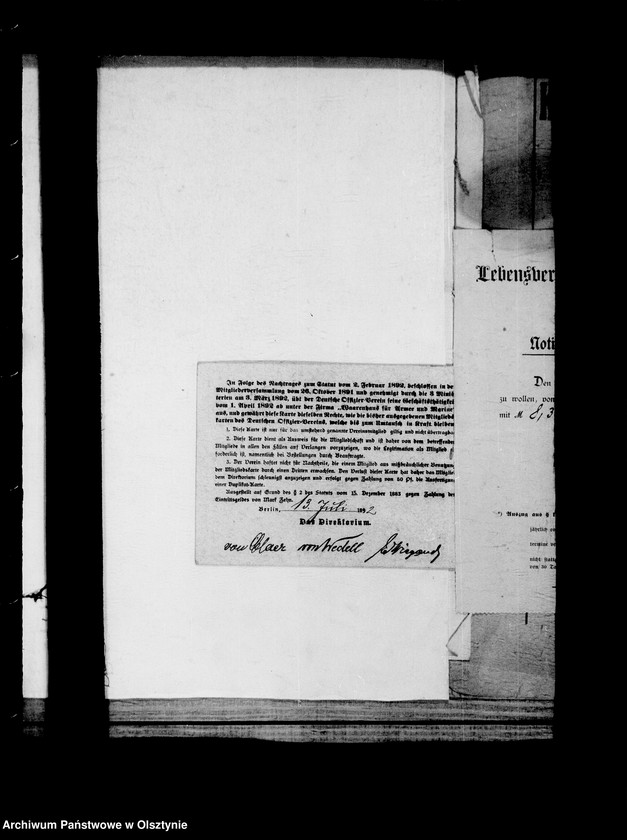 In Folge des Nachtrages zum Statut vom 2. Februar 1892, beschlossen in de
Mitgliederversammlung vom 26. Oktober 1891 und genehmigt durch die 3 Minis
terien am 3. März 1892, übt der Deutsche Offizier-Verein seine Geschäftsthätigkei
vom 1. April 1892 ab unter der Firma „Waarenhaus für Armee und Marine
aus, und gewährt diese Karte dieselben Rechte, wie die bisher ausgegebenen Mitglieds
karten des Deutschen Offizier-Vereins, welche bis zum Umtausch in Kraft bleiben
1. Diese Karte ist nur für das umstehend genannte Vereinsmitglied giltig und nicht übertragba
2. Diese Karte dient als Ausweis für die Mitgliedschaft und ist daher von dem betreffende
Mitgliede in allen den Fällen auf Verlangen vorzuzeigen, wo die Legitimation als Mitglied
forderlich ist, namentlich bei Bestellungen durch Beauftragte.
3. Der Verein haftet nicht für Nachtheile, die einem Mitglied aus mißbräuchlicher Benutzun
der Mitgliedskarte durch einen Dritten erwachsen. Den Verlust dieser Karte hat das Mitglie
dem Direktorium schleunigst anzuzeigen und erfolgt gegen Zahlung von 50 Pf. die Ausfertigun
einer Duplikat-Karte.
Ausgestellt auf Grund des § 2 des Statuts vom 15. Dezember 1883 gegen Zahlung de
Eintrittsgeldes von Mark Zehn.
Berlin, 13. Juli 1892
Das Direktorium.
von Wedell
Lebensver
Noti
Den
zu wollen, von
mit M 8,3
*) Auszug aus §
jährlich
termine ve
nicht
von 30 Ta
Archiwum Państwowe w Olsztynie